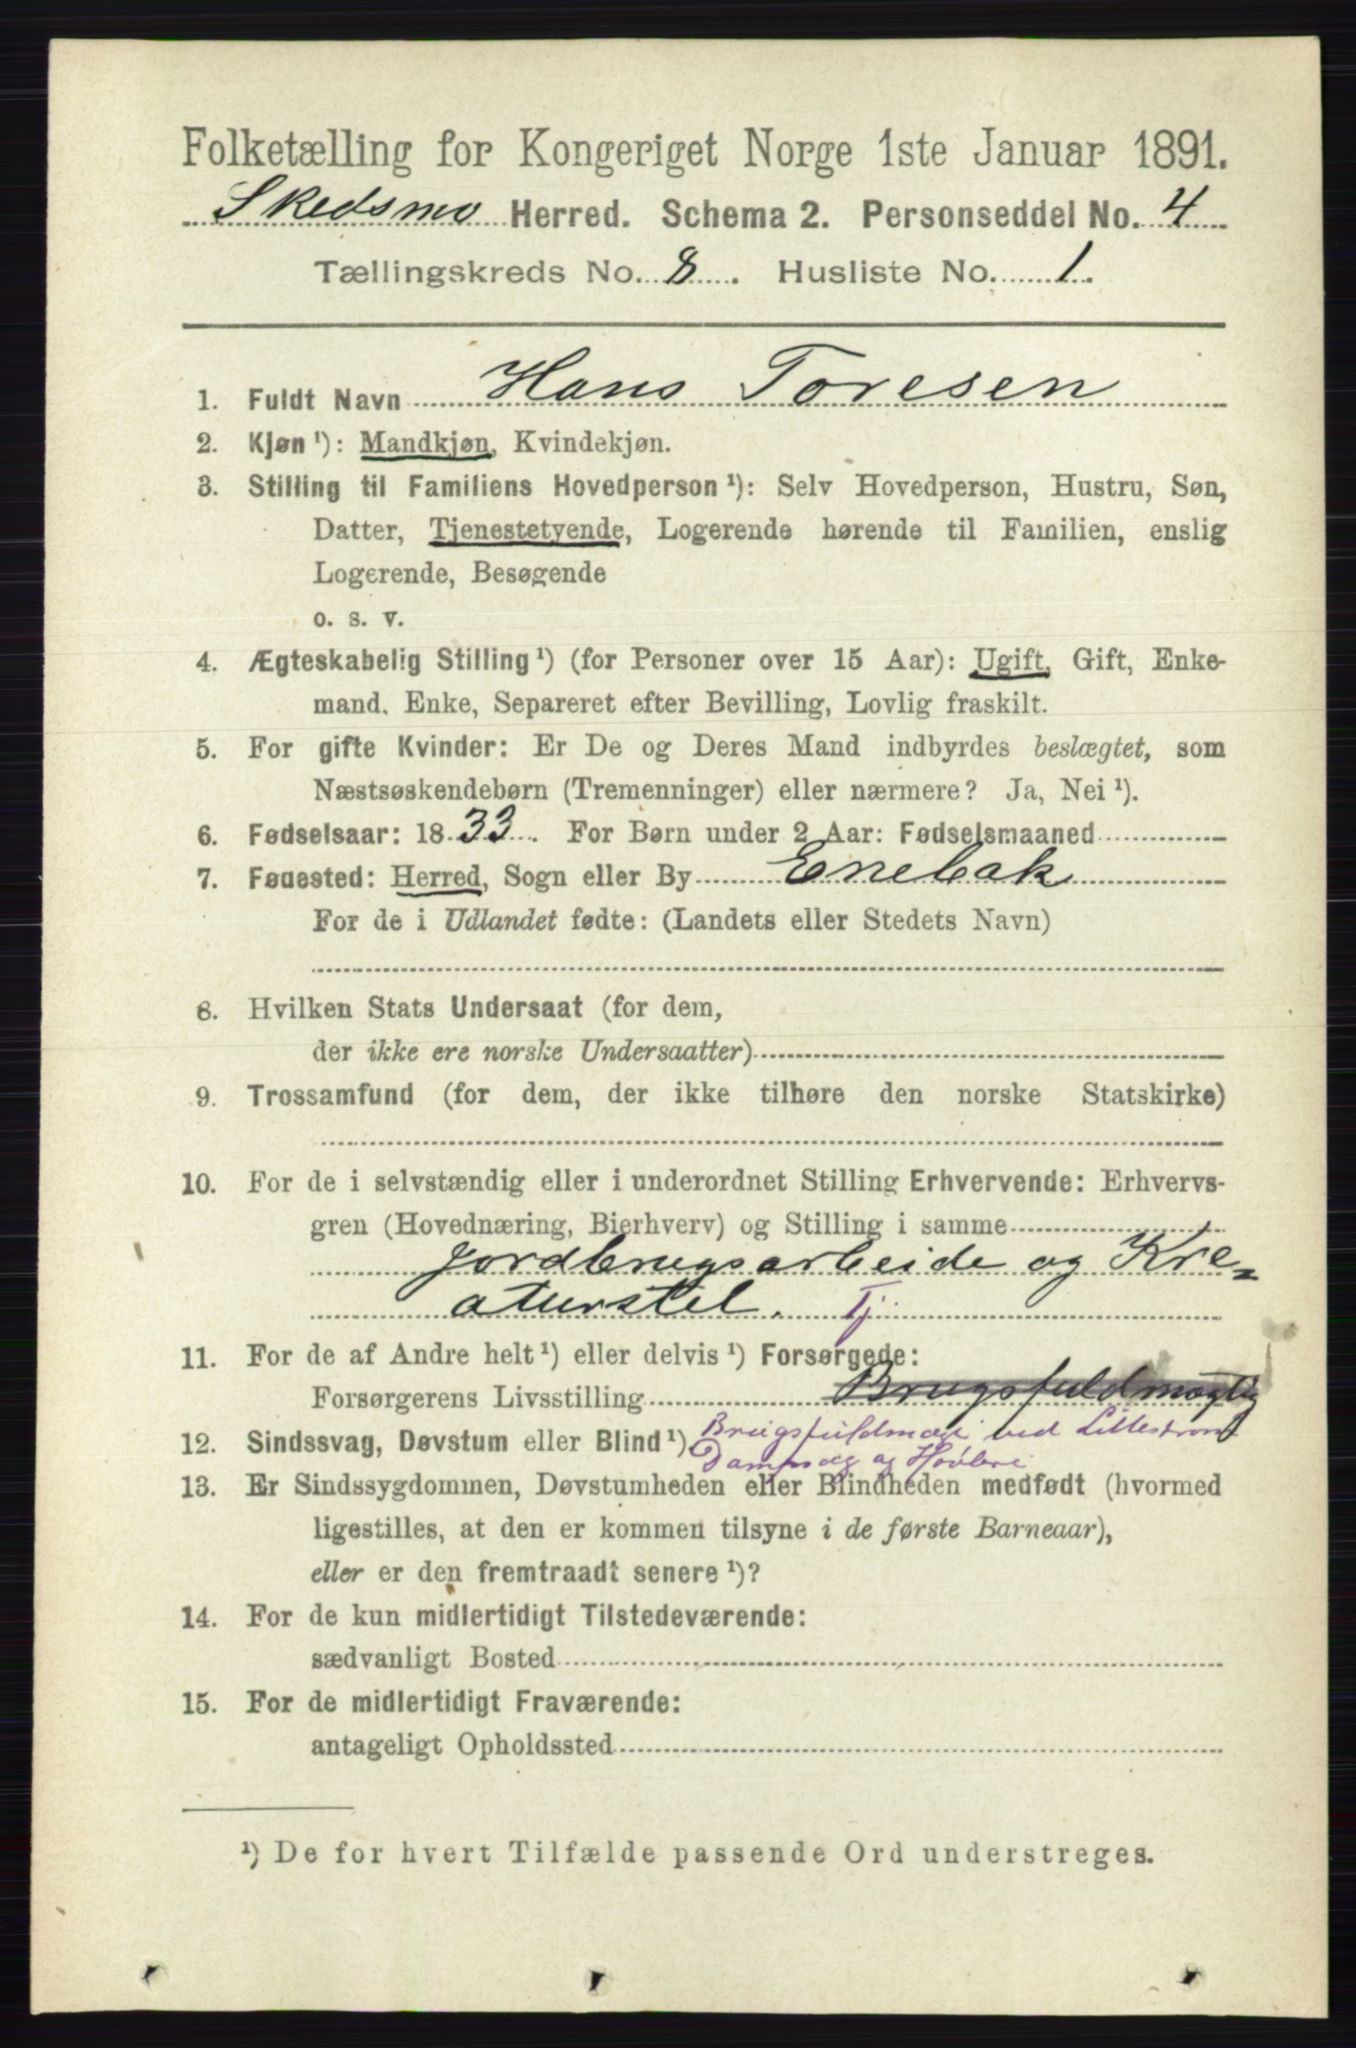 Folketælling for Kongeriget Norge 1ste Januar 1891.
Skedsmo Herred. Schema 2. Personseddel No. 4
Tællingskreds No. 8. Husliste No. 1.
1. Fuldt Navn Hans Toresen
2. Kjøn ¹): Mandkjøn, Kvindekjøn.
3. Stilling til Familiens Hovedperson ¹): Selv Hovedperson, Hustru, Søn,
Datter, Tjenestetyende, Logerende hørende til Familien, enslig
Logerende, Besøgende
o. s. v.
4. Ægteskabelig Stilling ¹) (for Personer over 15 Aar): Ugift, Gift, Enke-
mand, Enke, Separeret efter Bevilling, Lovlig fraskilt.
5. For gifte Kvinder: Er De og Deres Mand indbyrdes beslægtet, som
Næstsøskendebørn (Tremenninger) eller nærmere? Ja, Nei ¹).
6. Fødselsaar: 1833. For Børn under 2 Aar: Fødselsmaaned
7. Fødested: Herred, Sogn eller By Enebak
For de i Udlandet fødte: (Landets eller Stedets Navn)
8. Hvilken Stats Undersaat (for dem,
der ikke ere norske Undersaatter)
9. Trossamfund (for dem, der ikke tilhøre den norske Statskirke)
10. For de i selvstændig eller i underordnet Stilling Erhvervende: Erhvervs-
gren (Hovednæring, Bierhverv) og Stilling i samme
Jordbrugsarbeide og Kre-
aturstel. Tj.
11. For de af Andre helt ¹) eller delvis ¹) Forsørgede:
Forsørgerens Livsstilling Brugsfuldmægtig
12. Sindssvag, Døvstum eller Blind ¹). Brugsfuldmægt ved Lillestrøm
Dampsag og Høvleri
13. Er Sindssygdommen, Døvstumheden eller Blindheden medfødt (hvormed
ligestilles, at den er kommen tilsyne i de første Barneaar),
eller er den fremtraadt senere ¹)?
14. For de kun midlertidigt Tilstedeværende:
sædvanligt Bosted
15. For de midlertidigt Fraværende:
antageligt Opholdssted
¹) De for hvert Tilfælde passende Ord understreges.